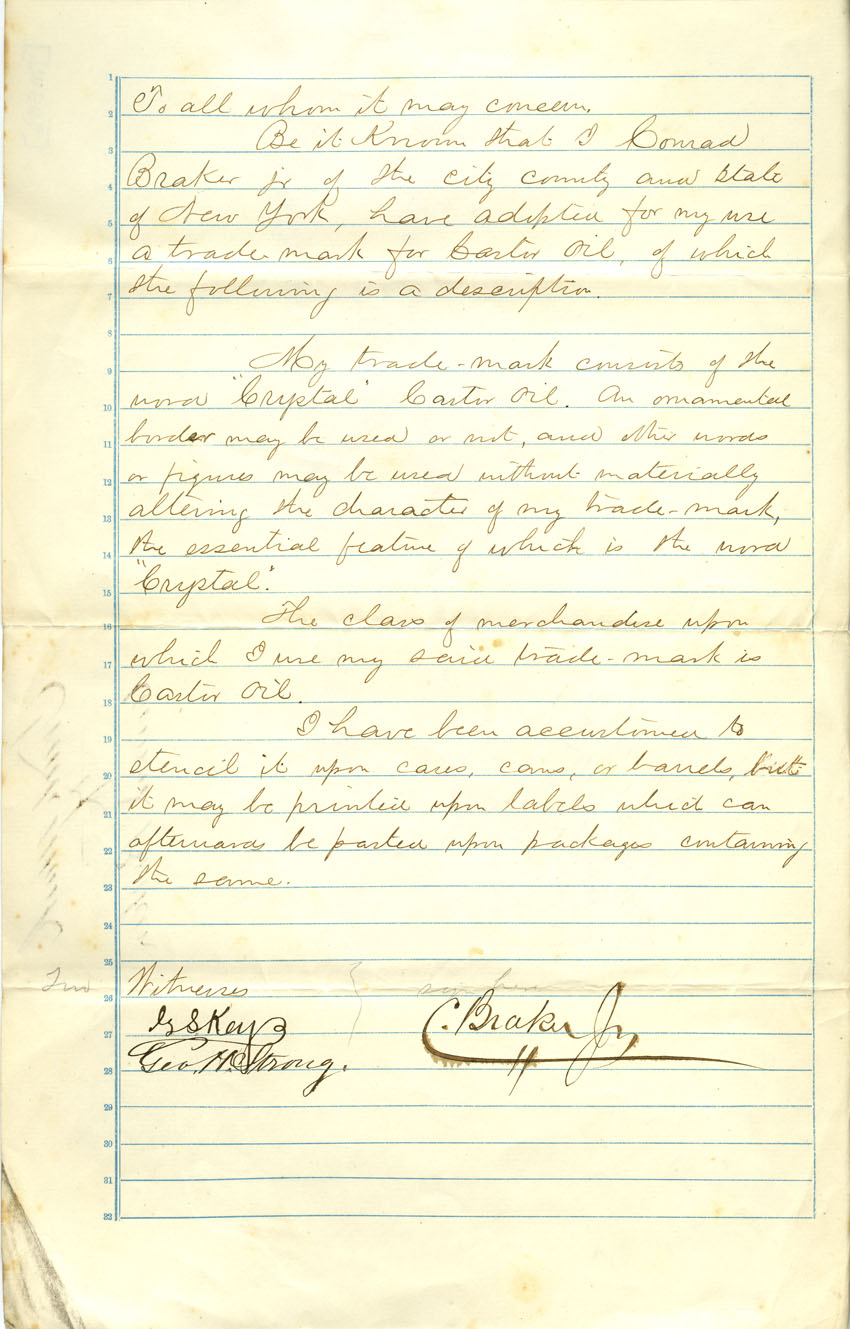 To all whom it may concern.
Be it Known that I Conrad
Braker jr of the city county and state
of New York, have adopted for my use
a trade-mark for Castor Oil, of which
the following is a description.
My trade-mark consists of the
word "Crystal" Castor Oil. An ornamental
border may be used or not, and other words
or figures may be used without materially
altering the character of my trade-mark,
the essential feature of which is the word
"Crystal".
The class of merchandise upon
which I use my said trade-mark is
Castor Oil.
I have been accustomed to
stencil it upon cases, cans, or barrels, but
it may be printed upon labels which can
afterwards be pasted upon packages containing
the same.
Two Witnesses sign here
C. Braker Jr
Geo. H. Strong.
1
2
3
4
5
6
7
8
9
10
11
12
13
14
15
16
17
18
19
20
21
22
23
24
25
26
27
28
29
30
31
32